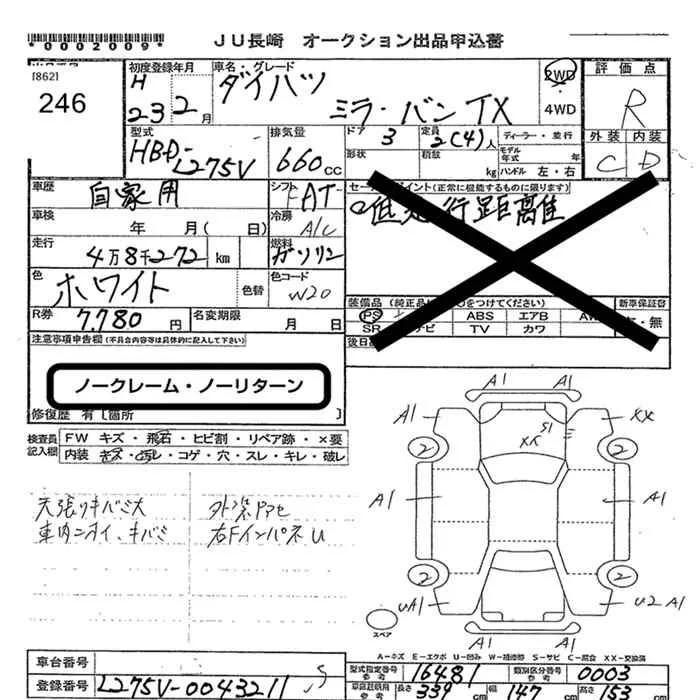 *0002009*
JU長崎 オークション出品申込書
[862]
246
初度登録年月
H
23 2月
車名・グレード
ダイハツ
ミラ・バン TX
2WD
・
4WD
評価点
R
外装 内装
C D
型式
HBD-
L275V
排気量
660cc
ドア 3
定員 2(4)人
ディーラー・並行
形状
積載 kg
モデル年式 年
ハンドル 左・右
車歴
自家用
シフト FAT
冷房 A/C
車検 年 月( 日)
走行
4万8千272 km
燃料
ガソリン
色
ホワイト
色替
色コード
W20
R券
7,780円
名変期限 月 日
セールスポイント(正常に機能するものに限ります)
低走行距離
装備品(純正品に○をつけてください)
PS ABS エアB AW
SR ナビ TV カワ
新車保証書
・無
後日
注意事項申告欄(不具合内容等は具体的に記入して下さい)
ノークレーム・ノーリターン
修復歴 有[箇所 ]
検査員記入欄
FW キズ・飛石・ヒビ割・リペア跡・×要
内装 キズ・汚レ・コゲ・穴・スレ・キレ・破レ
天張りキバミ大
車内ニオイ、キバミ
外装アセ
右FインパネU
A1 A1
A1 XX
S1
XX
2 2
A1 A1
2 2
UA1 U2 A1
A1 A1
スペア
A-キズ E-エクボ U-凹み W-補修跡 S-サビ C-腐食 XX-交換済
車台番号
登録番号 L275V-0043211
S
型式指定番号 16481
類別区分番号 0003
長さ 339cm 幅 147cm 高さ 153cm